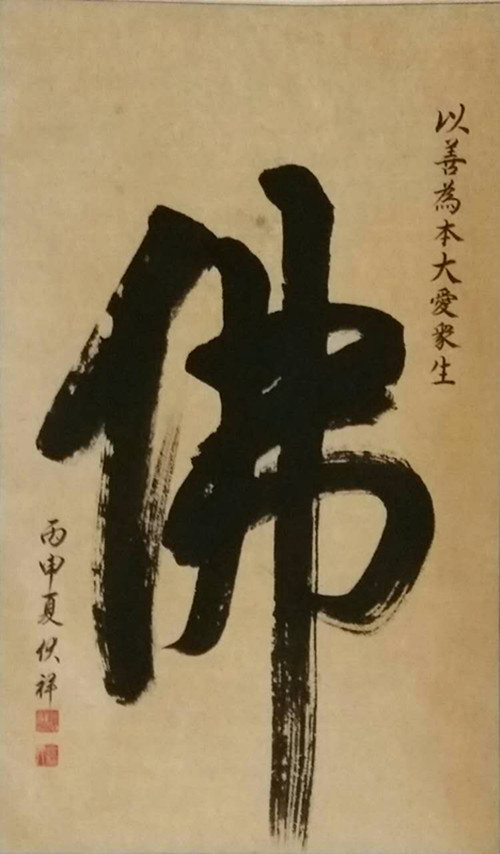 以善為本大愛眾生
佛
丙申夏 祥